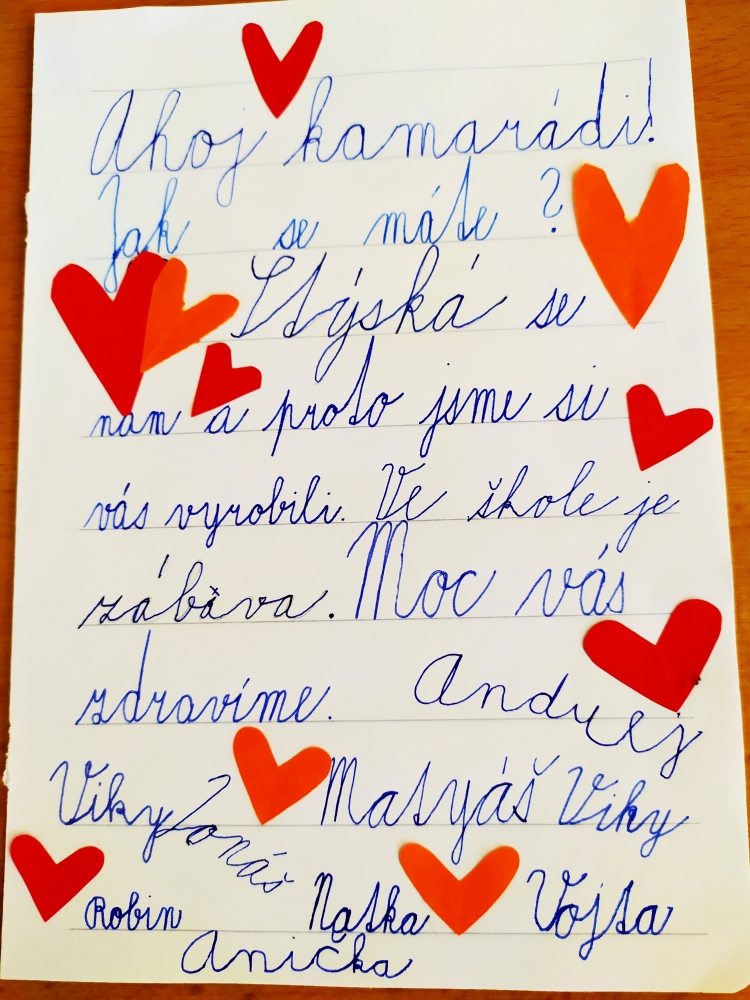 Ahoj kamarádi!
Jak se máte ?
Stýská se
nám a proto jsme si
vás vyrobili. Ve škole je
zábava. Moc vás
zdravíme. Andrej
Viky Jonáš Matyáš Viky
Robin Natka Vojta
Anička